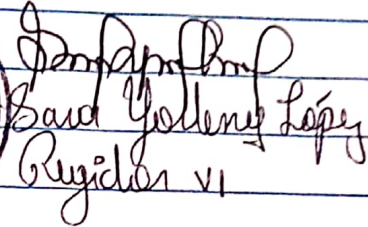 Sara Yolleny López
Regidor VI